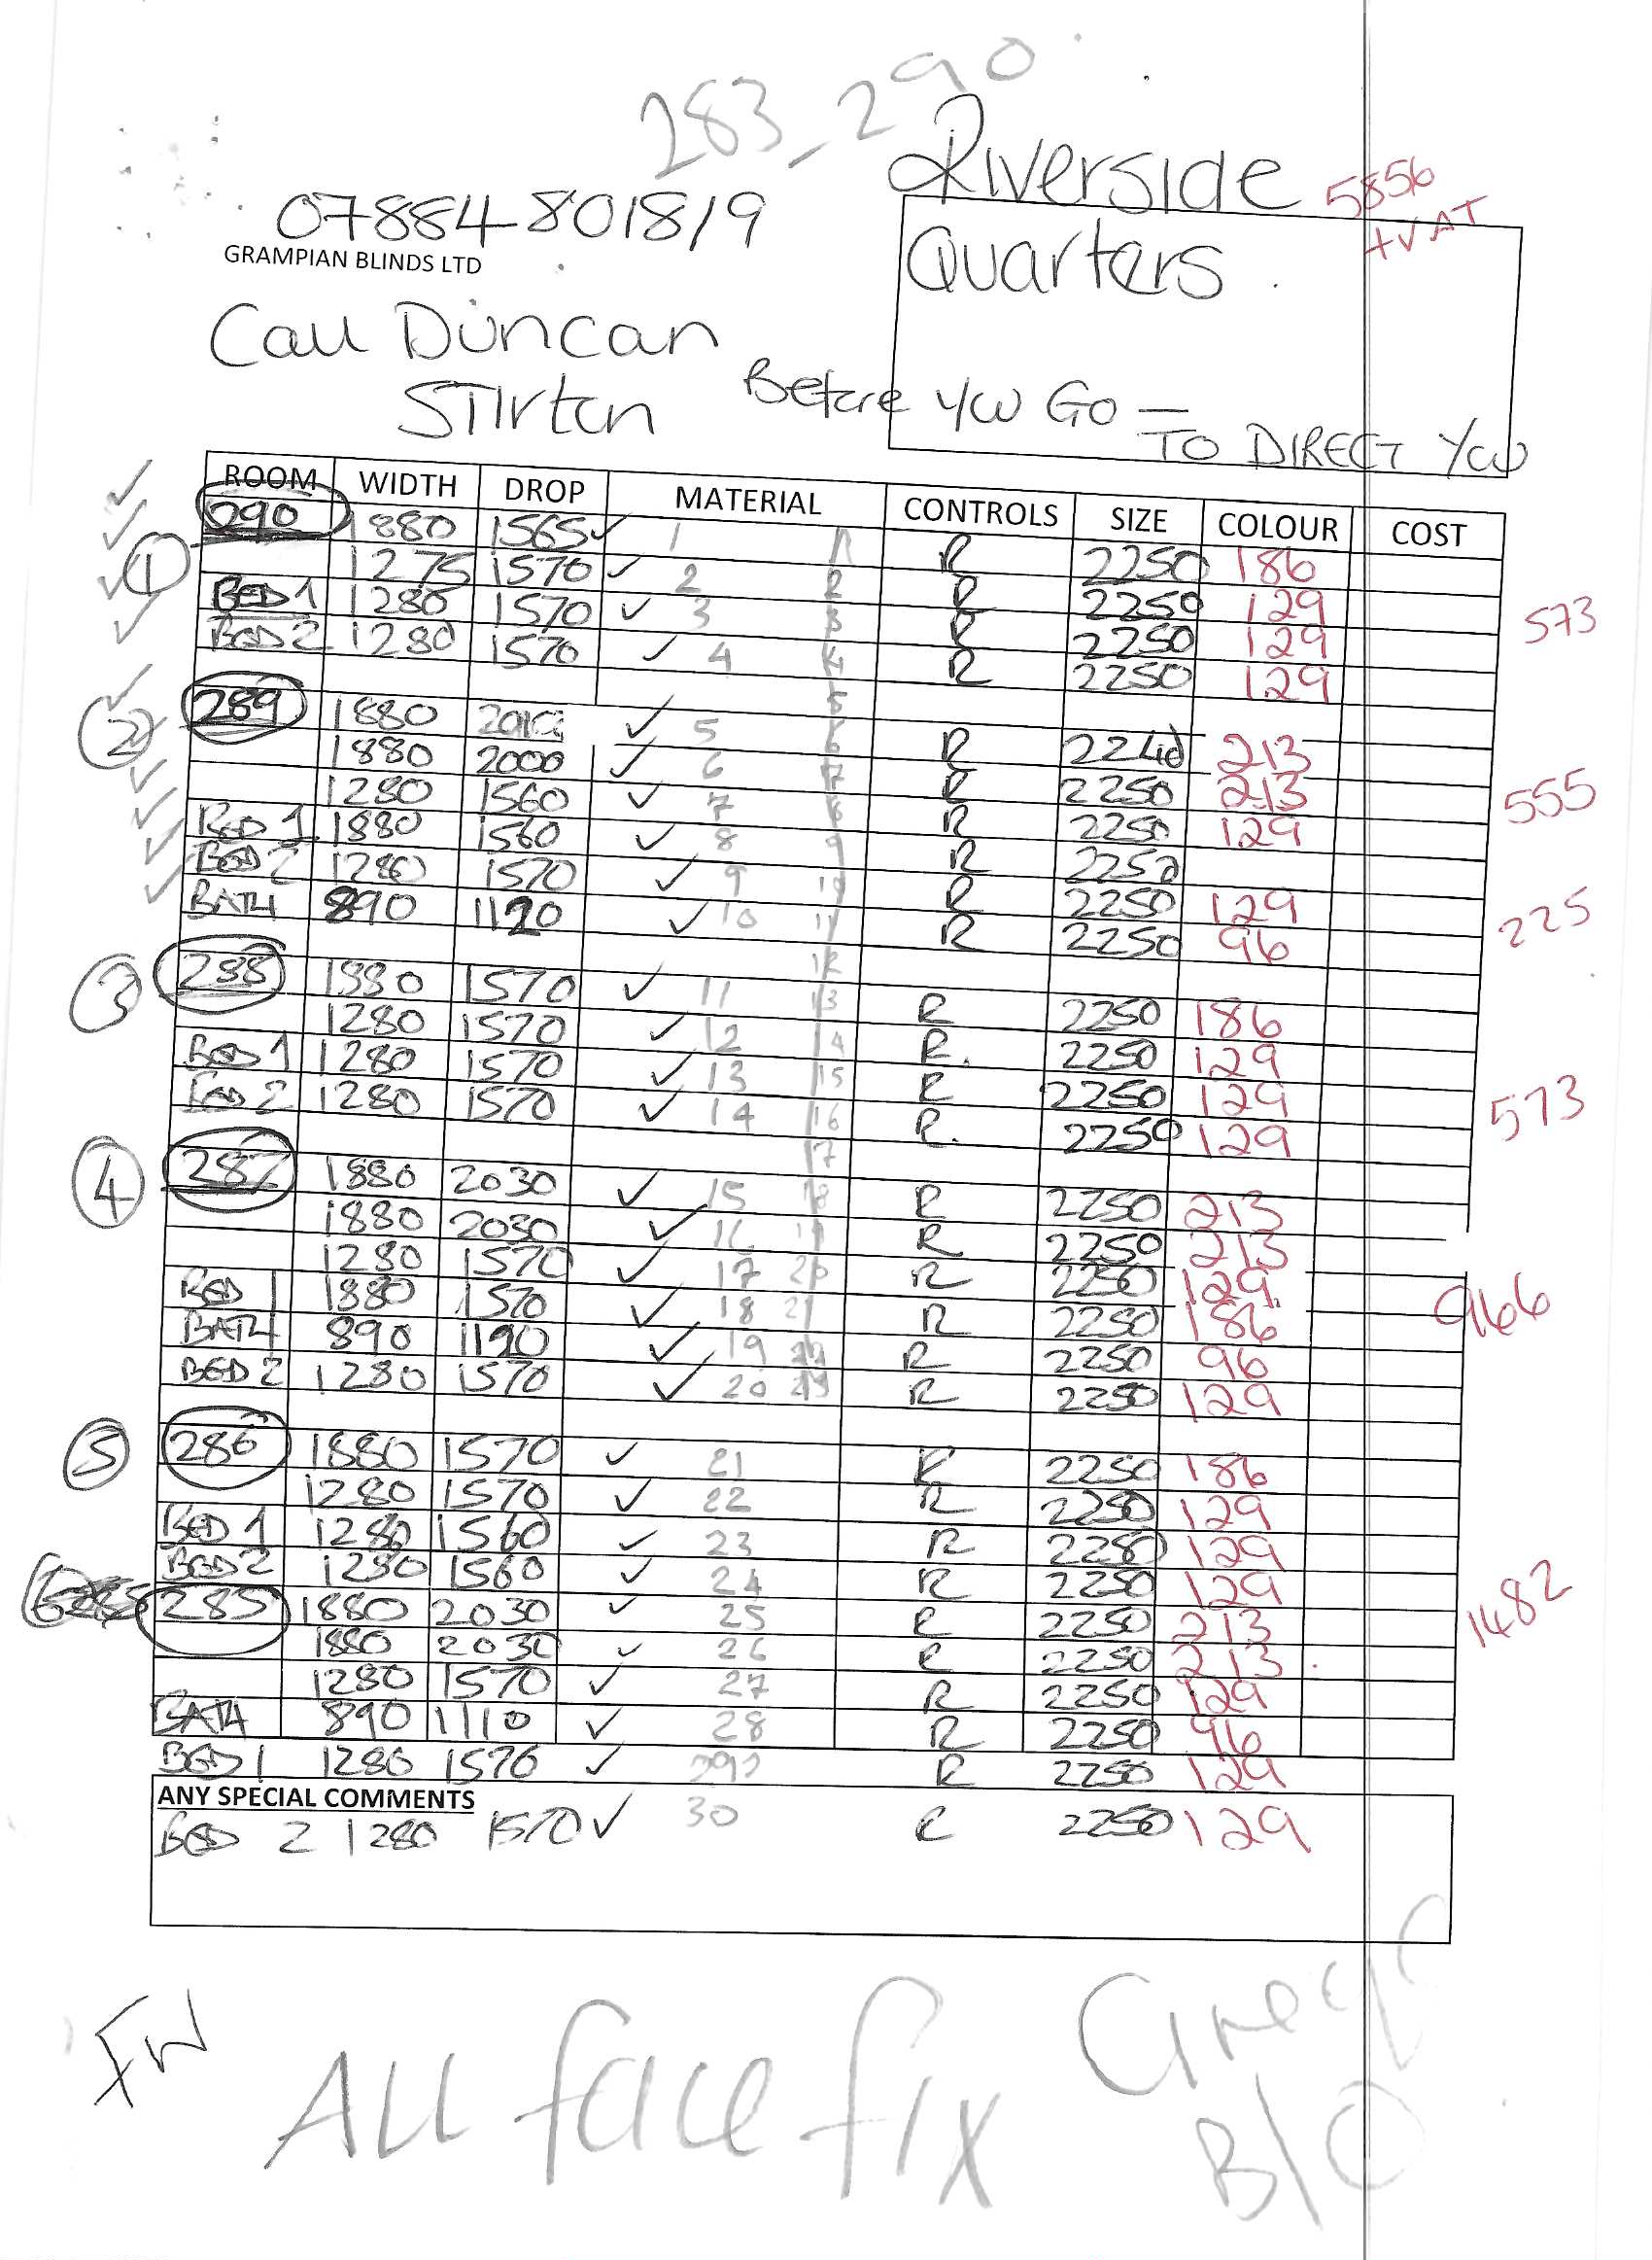 283-290
Riverside
5856
+VAT
07884801819
GRAMPIAN BLINDS LTD
Quarters
Call Duncan
Stirton Before you Go —
TO DIRECT YOU
ROOM WIDTH DROP MATERIAL CONTROLS SIZE COLOUR COST
1 290 1880 1565 ✓ 1 R 2250 186
1275 1570 ✓ 2 2 R 2250 129
BED 1 1280 1570 ✓ 3 3 R 2250 129 573
BED 2 1280 1570 ✓ 4 4 R 2250 129
5
2 289 1880 ✓ 5 6 R 2240 213
1880 2000 ✓ 6 7 R 2250 213
1280 1560 ✓ 7 8 R 2250 129 555
BED 1 1880 1560 ✓ 8 9 R 2250
BED 2 1280 1570 ✓ 9 10 R 2250 129
BATH 890 1120 ✓ 10 11 R 2250 96 225
12
3 288 1880 1570 ✓ 11 13 R 2250 186
1280 1570 ✓ 12 14 R. 2250 129
BED 1 1280 1570 ✓ 13 15 R 2250 129
BED 2 1280 1570 ✓ 14 16 R. 2250 129 573
17
4 287 1880 2030 ✓ 15 18 R 2250 213
1880 2030 ✓ 16 19 R 2250 213
1280 1570 ✓ 17 20 R 2250 129
BED 1 1880 1570 ✓ 18 21 R 2250 186 966
BATH 890 1190 ✓ 19 22 R 2250 96
BED 2 1280 1570 ✓ 20 23 R 2250 129
5 286 1880 1570 ✓ 21 R 2250 186
1280 1570 ✓ 22 R 2250 129
BED 1 1280 1560 ✓ 23 R 2250 129
BED 2 1280 1560 ✓ 24 R 2250 129
285 1880 2030 ✓ 25 R 2250 213 1482
1880 2030 ✓ 26 R 2250 213
1280 1570 ✓ 27 R 2250 129
BATH 890 1110 ✓ 28 R 2250 96
BED 1 1280 1570 ✓ 29 R 2250 129
ANY SPECIAL COMMENTS
BED 2 1280 1570 ✓ 30 R 2250 129
FW
All face fix
B/O